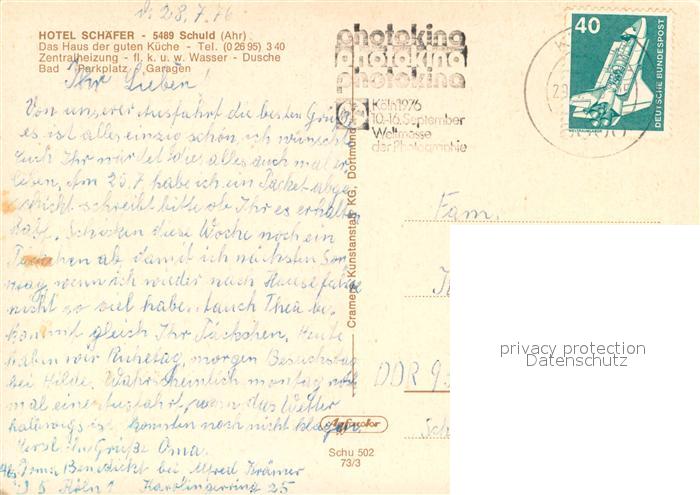 d. 28.7.76
HOTEL SCHÄFER - 5489 Schuld (Ahr)
Das Haus der guten Küche - Tel. (0 26 95) 3 40
Zentralheizung - fl. k. u. w. Wasser - Dusche
Bad - Parkplatz - Garagen
Ihr Lieben!
Von unserer Ausfahrt die besten Grüße
es ist alles einzig schön, ich wünschte
Euch Ihr würdet dies alles auch mal er-
leben, Am 25.7 habe ich ein Packet abge-
schickt schreibt bitte ob Ihr es erhalten
habt. Schicken diese Woche noch ein
ab damit ich nächsten Son-
tag, wenn ich wieder nach Hause fahre
nicht so viel habe. auch Thea be-
kommt gleich Ihr Päckchen. Heute
haben wir Ruhetag, morgen Besuchstag
bei Hilde. Wahrscheinlich montag noch
mal eine Ausfahrt, wenn das Wetter
halbwegs ist. konnten noch nicht klagen.
Herzl. Grüße Oma.
Irma Benedickt bei Alfred Krämer
5 Köln 1 Karolingerring 25
photokina
photokina
photokina
Köln 1976
10.-16. September
Weltmesse
der Photographie
40
DEUTSCHE BUNDESPOST
WELTRAUMLABOR
Cramers Kunstanstalt KG, Dortmund
Fam.
DDR 95
privacy protection
Datenschutz
Agfacolor
Schu 502
73/3